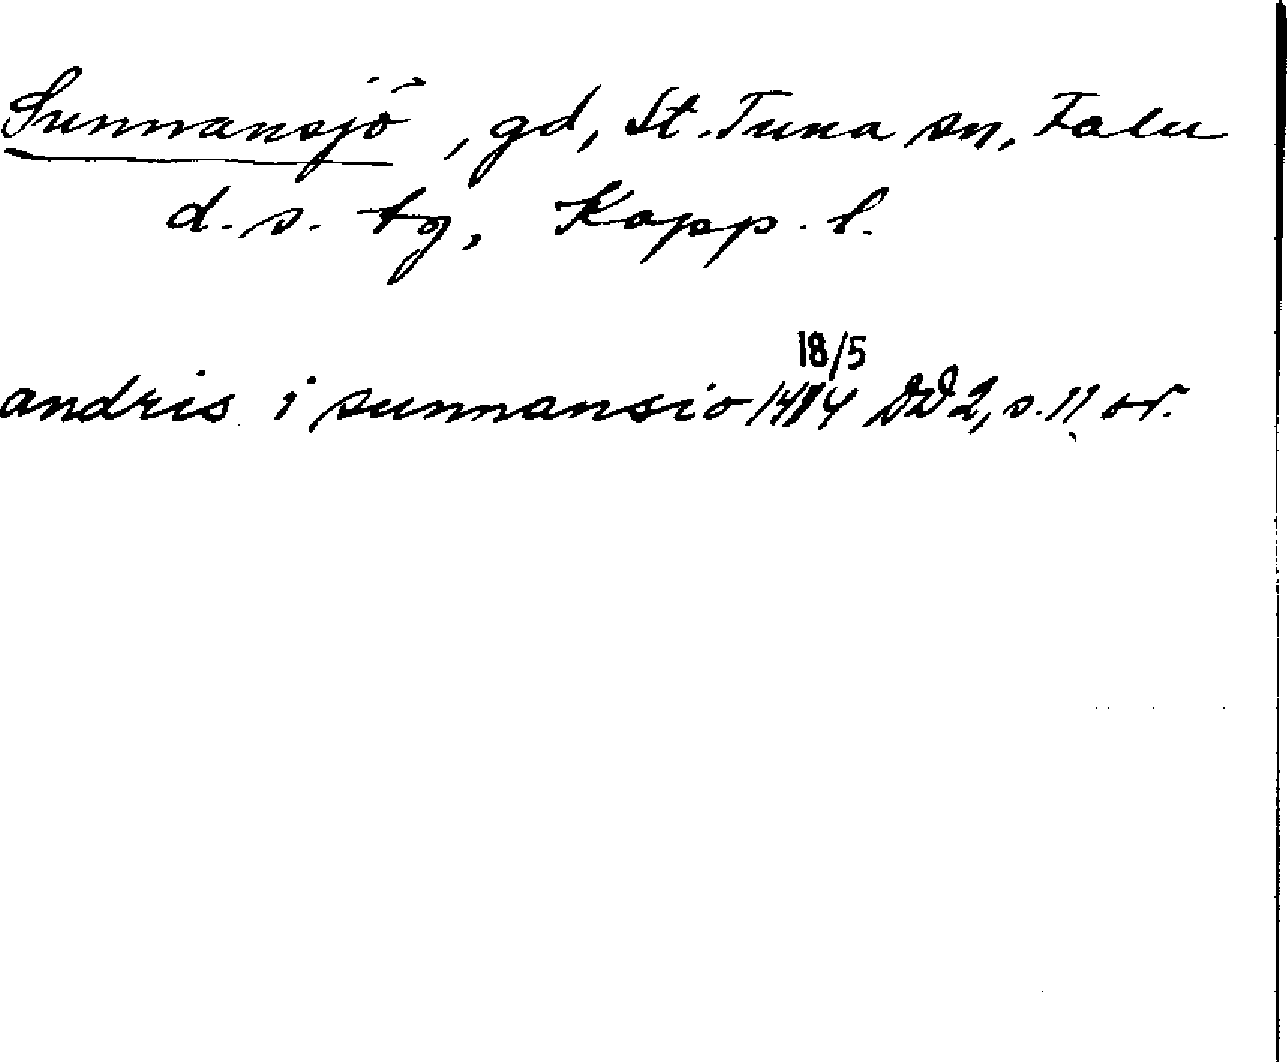 Sunnansjö, gd, St. Tuna sn, Falu
d. s. tg, Kopp. l.
18/5
andris i sunnansio DD 2, s. 11 or.